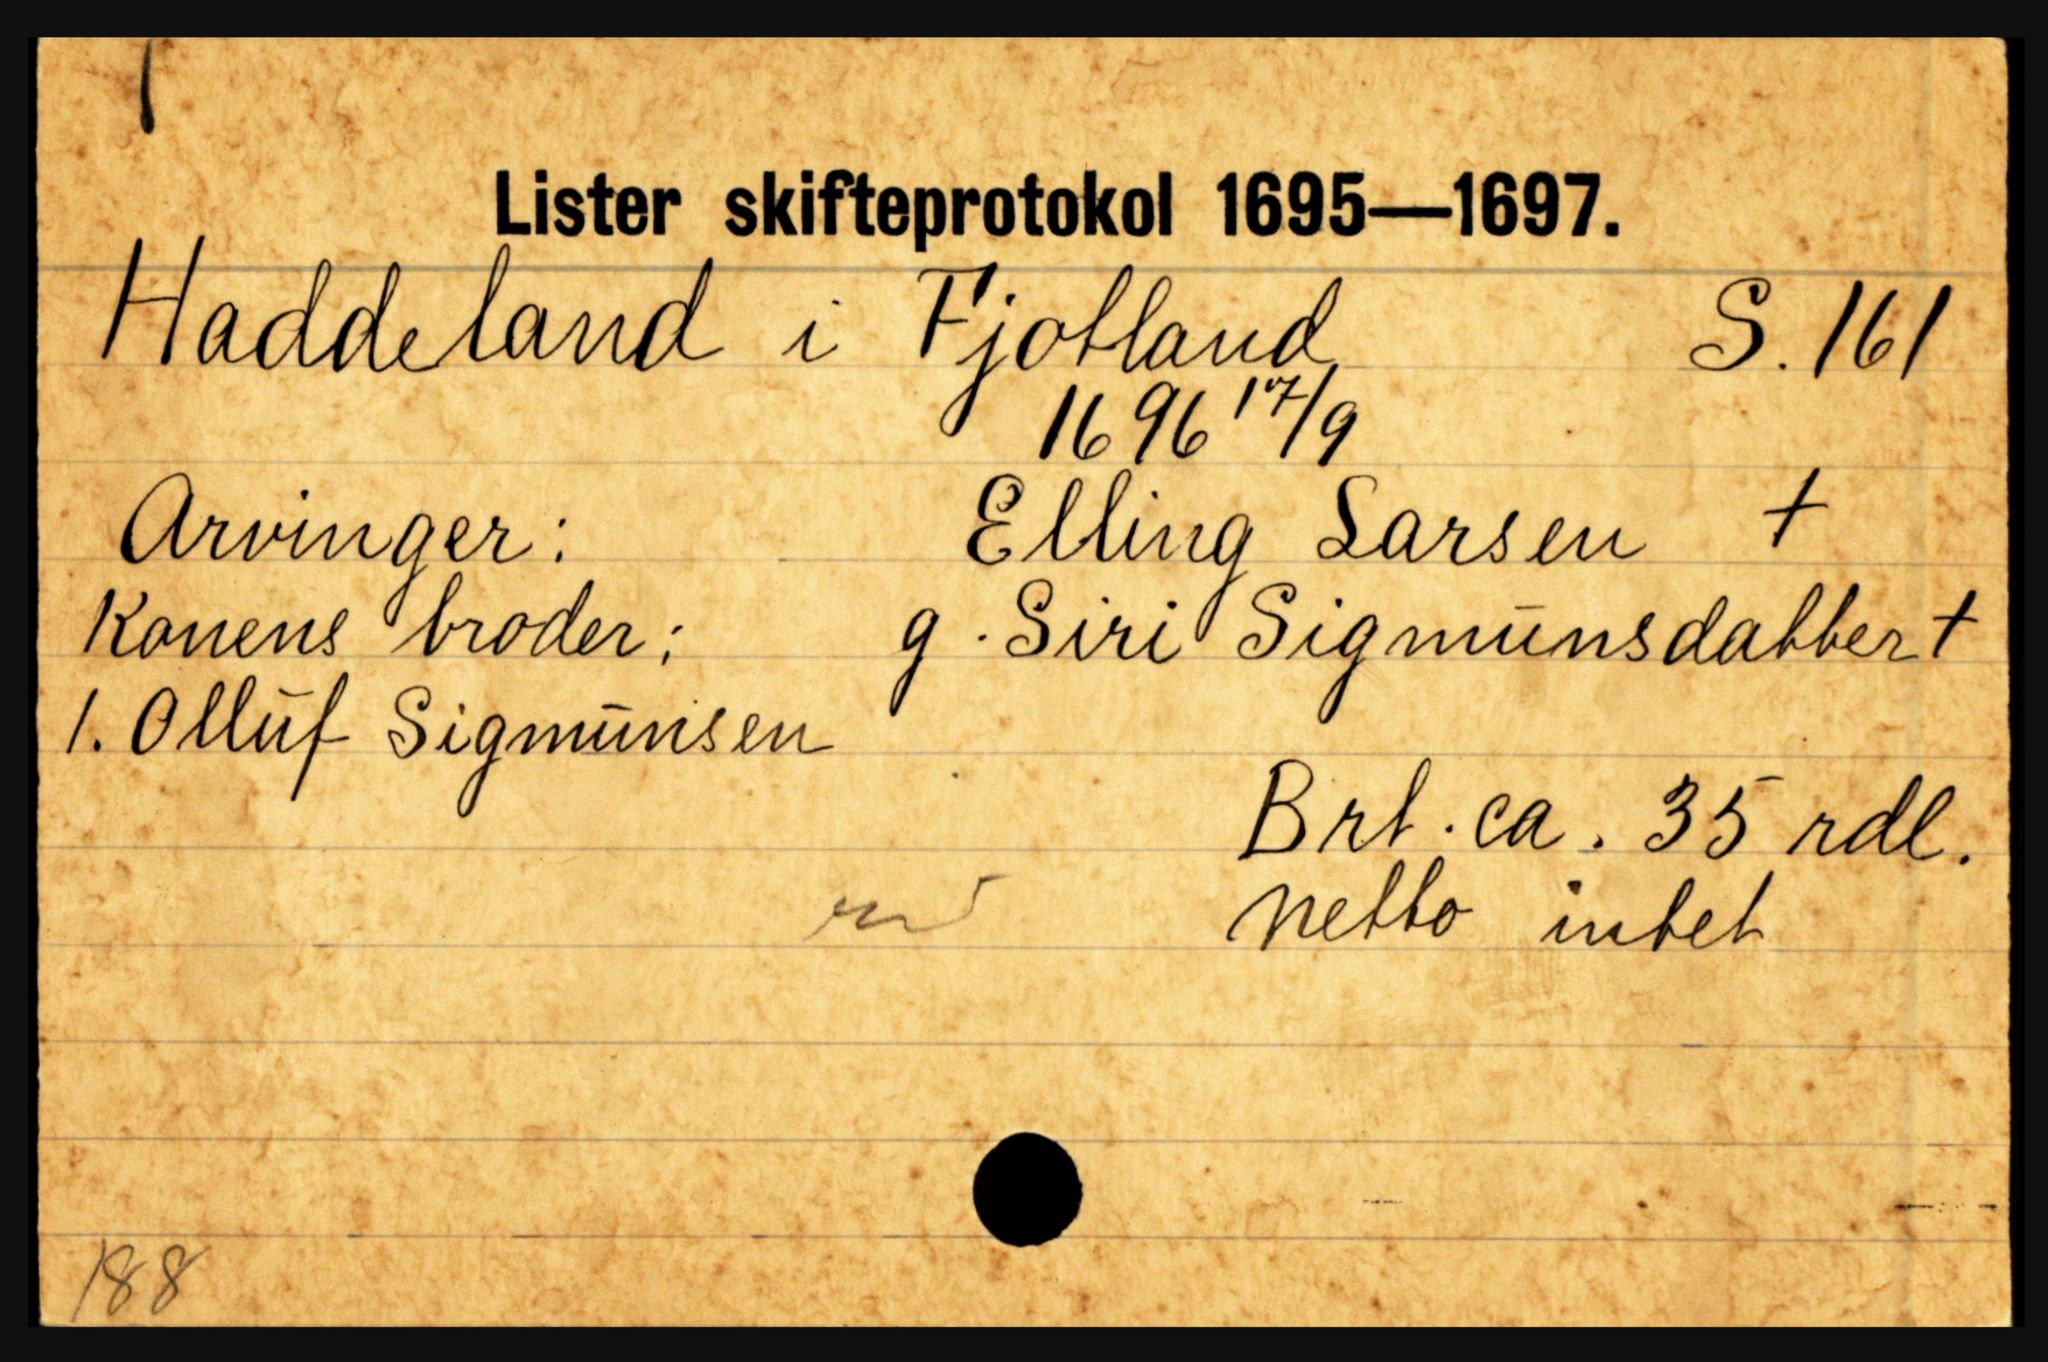 Lister skifteprotokol 1695—1697.
Haddeland i Fjotland S. 161
1696 17/9
Arvinger: Elling Larsen †
Konens broder: g. Siri Sigmūnsdatter †
1. Ollūf Sigmūnsen
Brt. ca. 35 rdl.
Netto intet
188